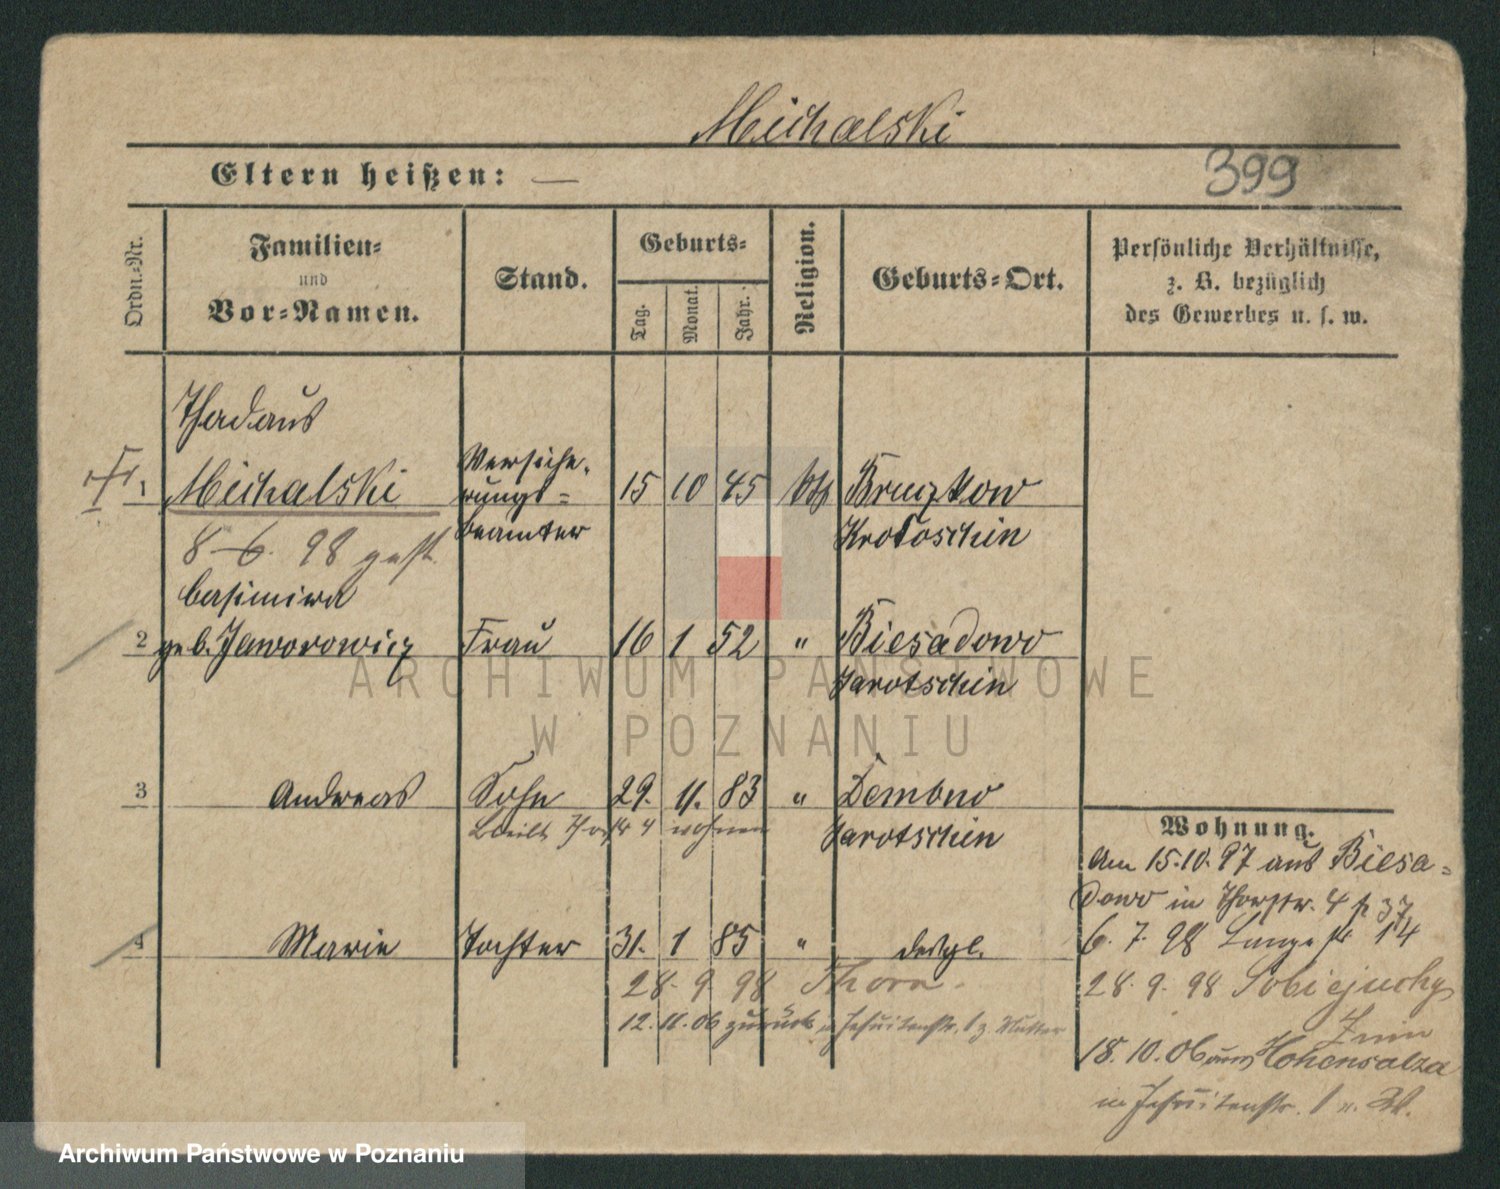 Michalski
Eltern heißen: —
399
Ordn.-Nr.
Familien-
und
Vor-Namen.
Stand.
Geburts-
Tag.
Monat.
Jahr.
Religion.
Geburts-Ort.
Persönliche Verhältnisse,
z. B. bezüglich
des Gewerbes u. s. w.
Thadaus
1 Michalski Versiche- 15 10 45 kth Bruczkow
rungs-
beamter Krotoschin
8-6. 98 gest.
Casimira
2 geb. Jaworowicz Frau 16 1 52 " Biesadowo
Jarotschin
3 Andreas Sohn 29. 11. 83 " Dembno
4 wohnen Jarotschin
Wohnung.
Am 15.10.97 aus Biesa-
dowo in Thorstr. 4
4 Marie Tochter 31. 1 85 " desgl.
6. 7. 98 Lange str 14
28. 9. 98 Thorn.
28. 9. 98 Sobiejuchy
Znin
12. 11. 06 zurück in Jesuitenstr. 1 z. Mutter
18. 10. 06 aus Hohensalza
in Jesuitenstr. 1
ARCHIWUM PAŃSTWOWE
W POZNANIU
Archiwum Państwowe w Poznaniu